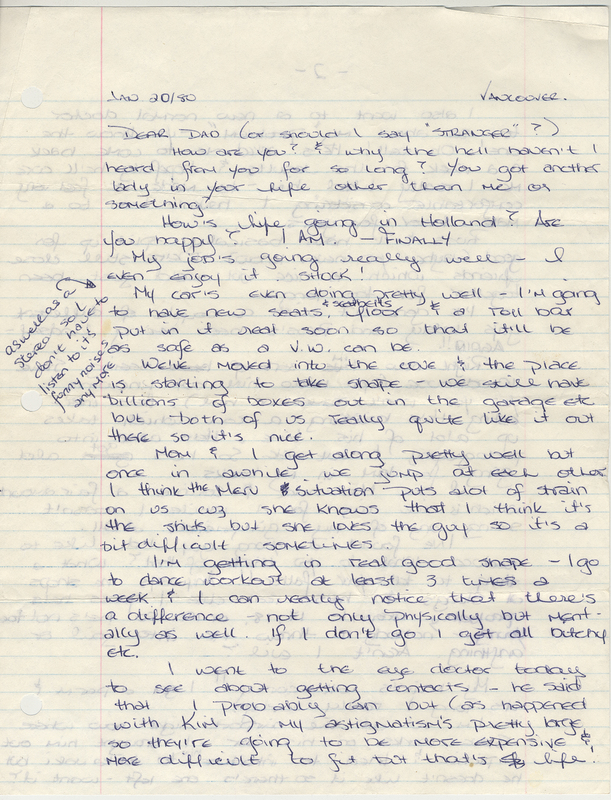 JAN. 20/80 VANCOUVER.
DEAR DAD (or should I say "STRANGER"?)
How are you? & why the hell haven't I
heard from you for so long? You got another
lady in your life other than me or
something?
How's life going in Holland? Are
you happy? I AM - FINALLY
My job's going really well - I
even enjoy it. SHOCK!
My car's even doing pretty well - I'm going
to have new seats, & seatbelts floor & a roll bar
put in it real soon so that it'll be
as safe as a V.W. can be.
as well as a
stereo so I
don't have to
listen to it's
funny noises
any more
We've moved into the cove & the place
is starting to take shape. we still have
billions of boxes out in the garage etc
but both of us really quite like it out
there so it's nice.
Mom & I get along pretty well but
once in awhile we jump at each other
I think the Merv situation puts alot of strain
on us cuz she knows that I think it's
the shits but she loves the guy so it's a
bit difficult sometimes.
I'm getting in real good shape - I go
to dance workout at least 3 times a
week & I can really notice that there's
a difference - not only physically but ment-
ally as well. If I don't go I get all bitchy
etc.
I went to the eye doctor today
to see about getting contacts - he said
that I probably can but (as happened
with Kim) my astigmatism's pretty large
so they're going to be more expensive &
more difficult to fit but that's life!